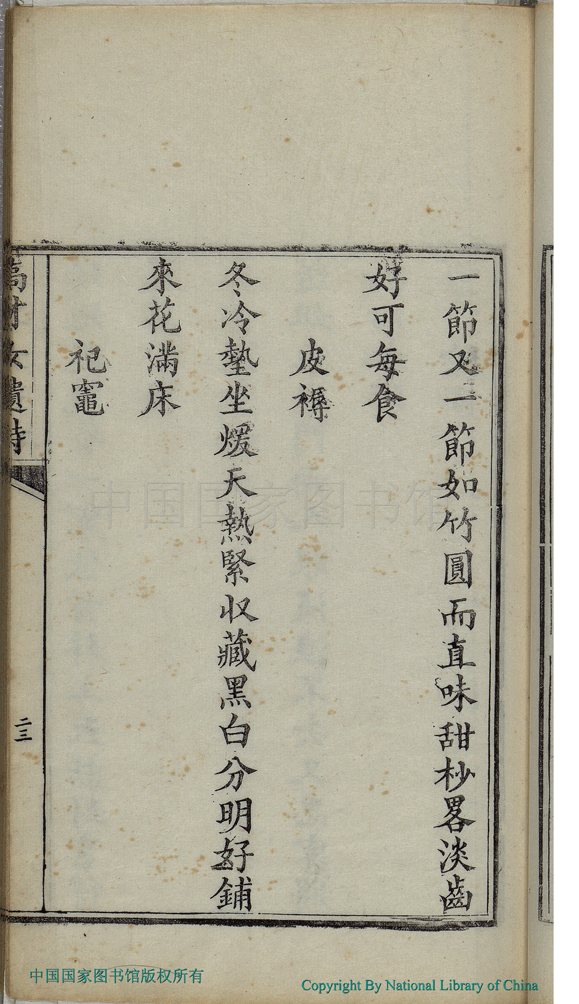 一節又一節如竹圓而直味甜杪畧淡齒
好可每食
皮褥
冬冷墊坐煖天熱緊收藏黑白分明好鋪
來花滿床
祀竈
高才女遺詩
二三
中国国家图书馆
中国国家图书馆版权所有
Copyright By National Library of China